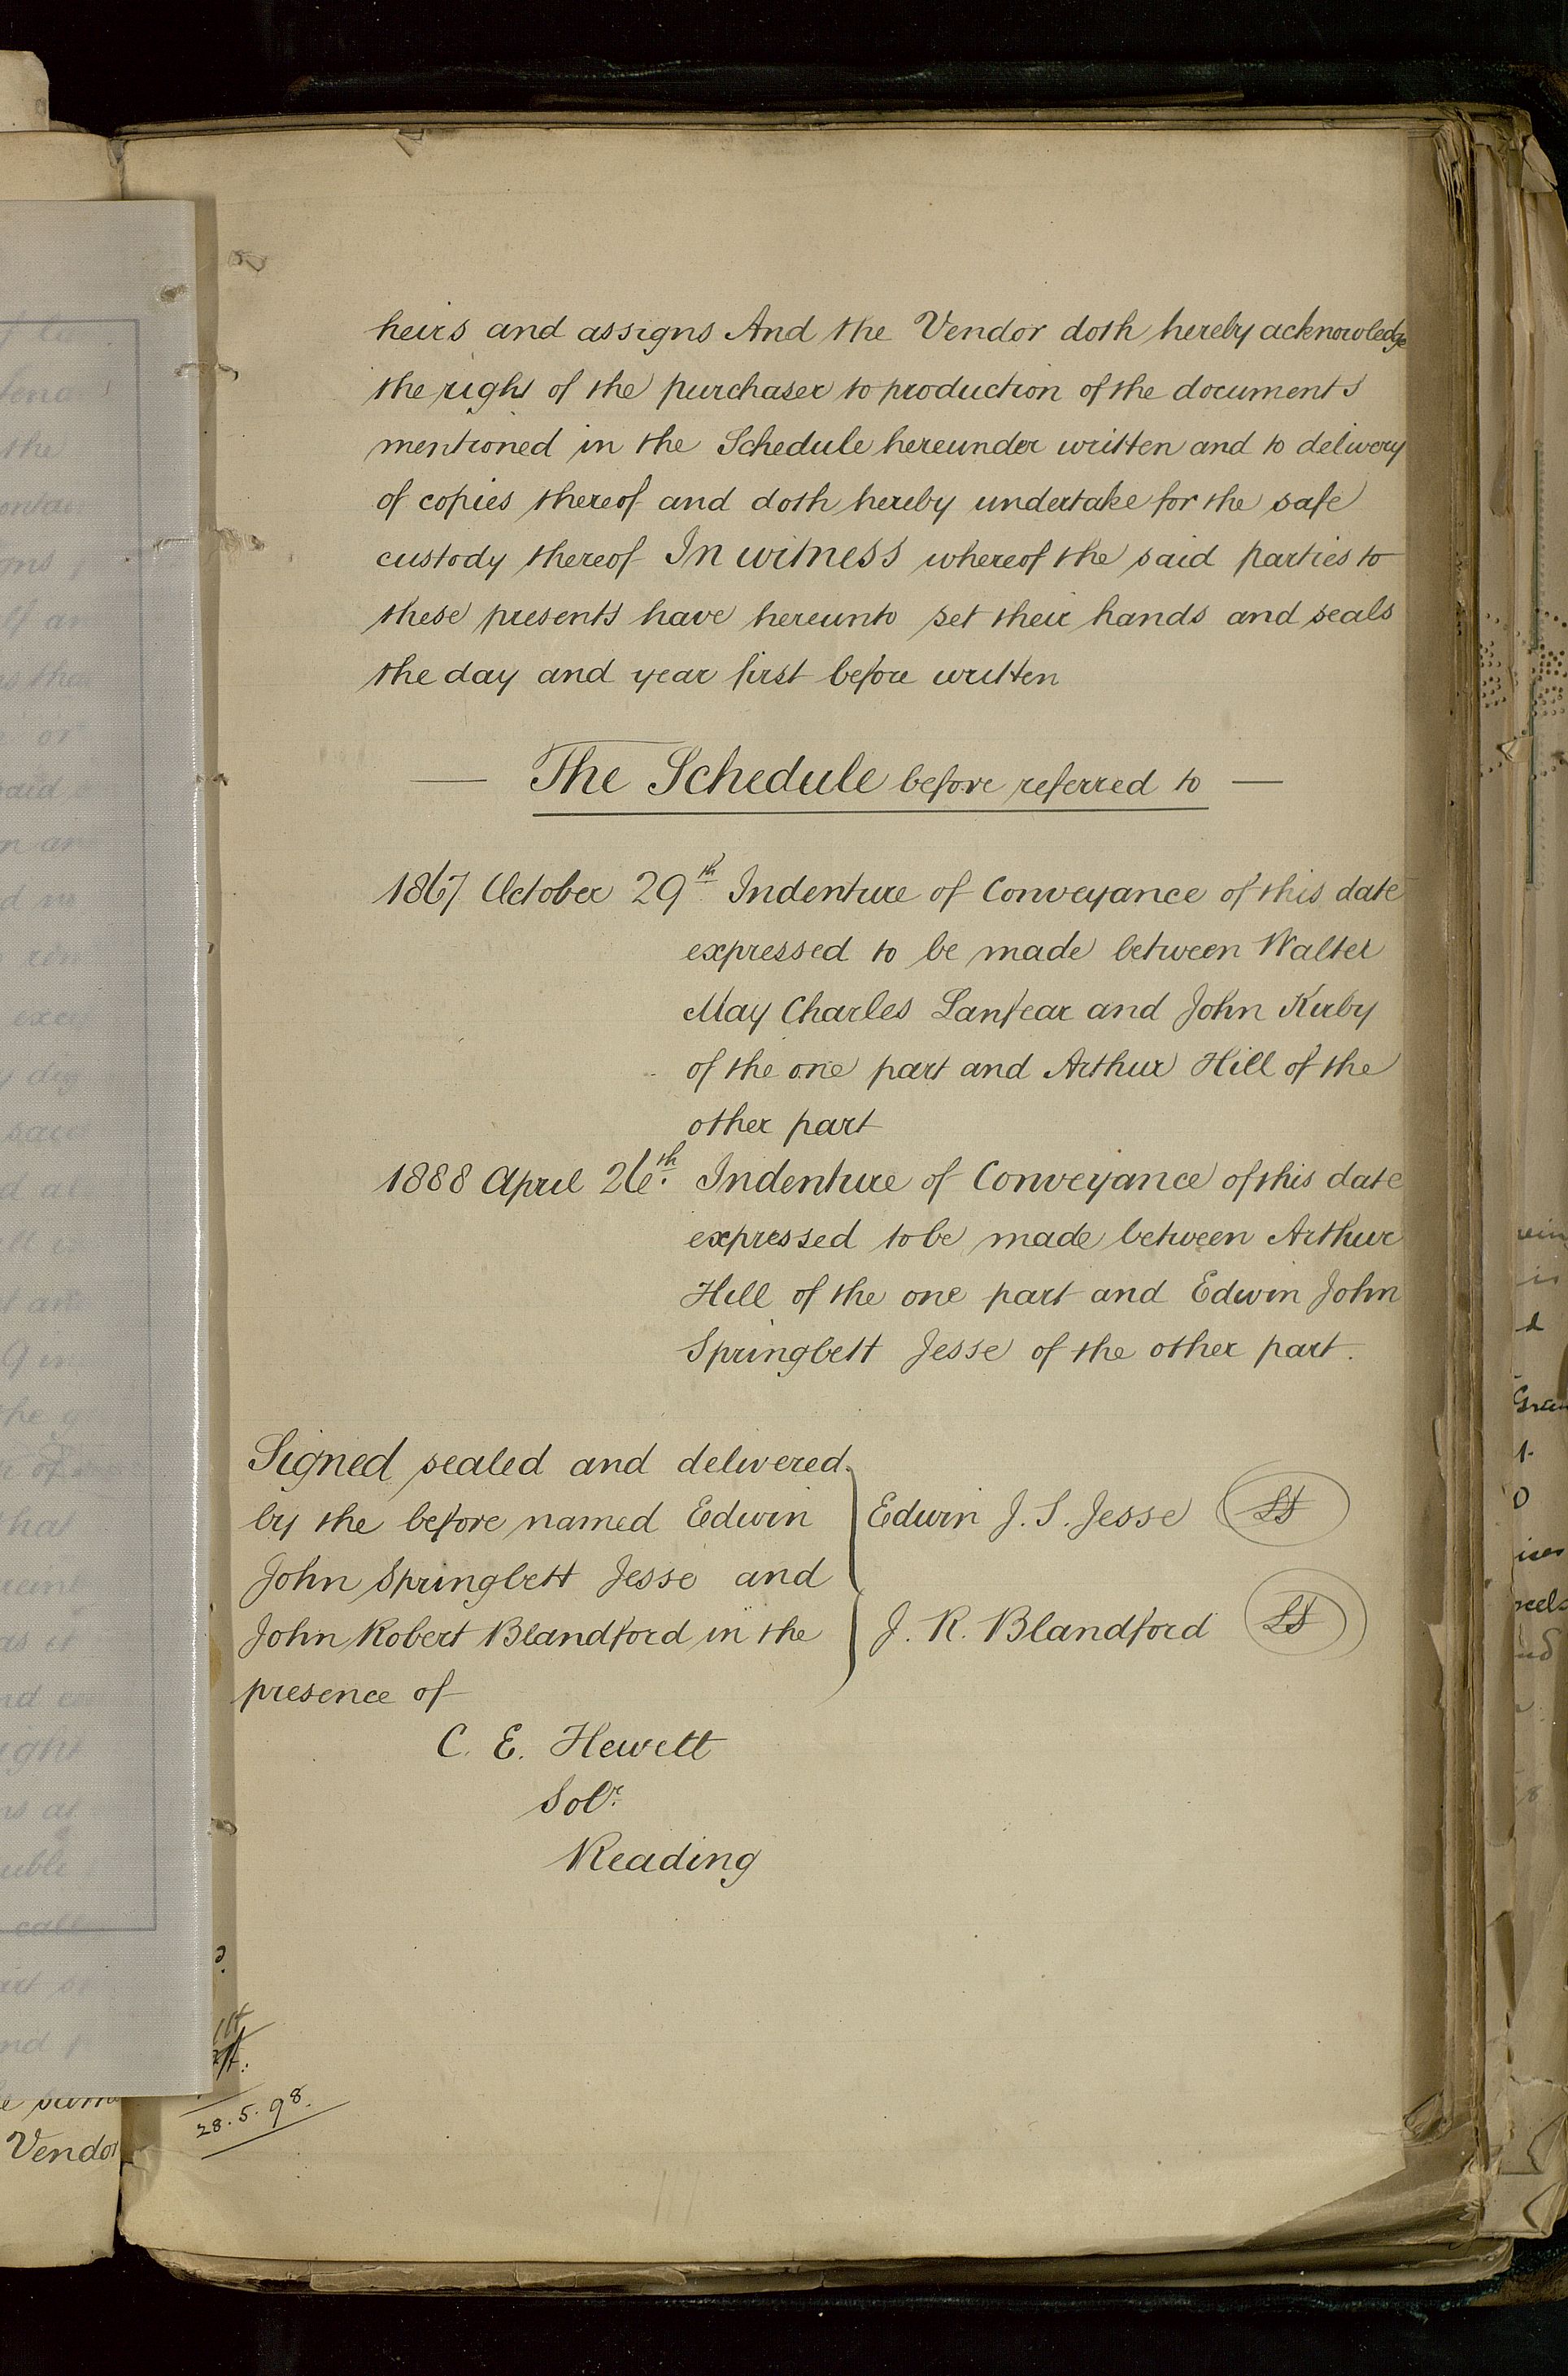 heirs and assigns And the Vendor doth hereby acknowledge
the right of the purchaser to production of the documents
mentioned in the Schedule hereunder written and to delivery
of copies thereof and doth hereby undertake for the safe
custody thereof In witness whereof the said parties to
these presents have hereunto set their hands and seals
the day and year first before written
— The Schedule before referred to —
1867 October 29th Indenture of Conveyance of this date
expressed to be made between Walter
May Charles Lanfear and John Kirby
of the one part and Arthur Hill of the
other part
1888 April 26th. Indenture of Conveyance of this date
expressed to be made between Arthur
Hill of the one part and Edwin John
Springbett Jesse of the other part.
Signed sealed and delivered
by the before named Edwin
John Springbett Jesse and
John Robert Blandford in the
presence of
Edwin J. S. Jesse LS
J. R. Blandford LS
C. E. Hewett
Solr.
Reading
28.5.98.
Vendor